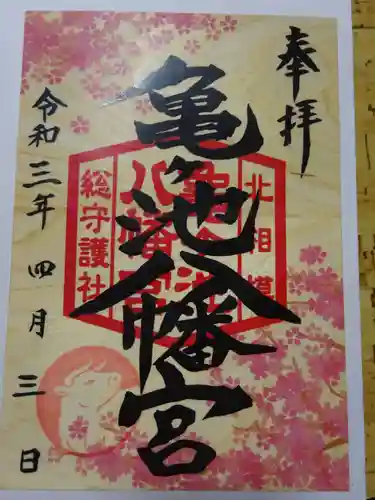 奉拝
亀ヶ池八幡宮
北相模
亀ヶ池
八幡宮
総守護社
令和三年 四月 三日